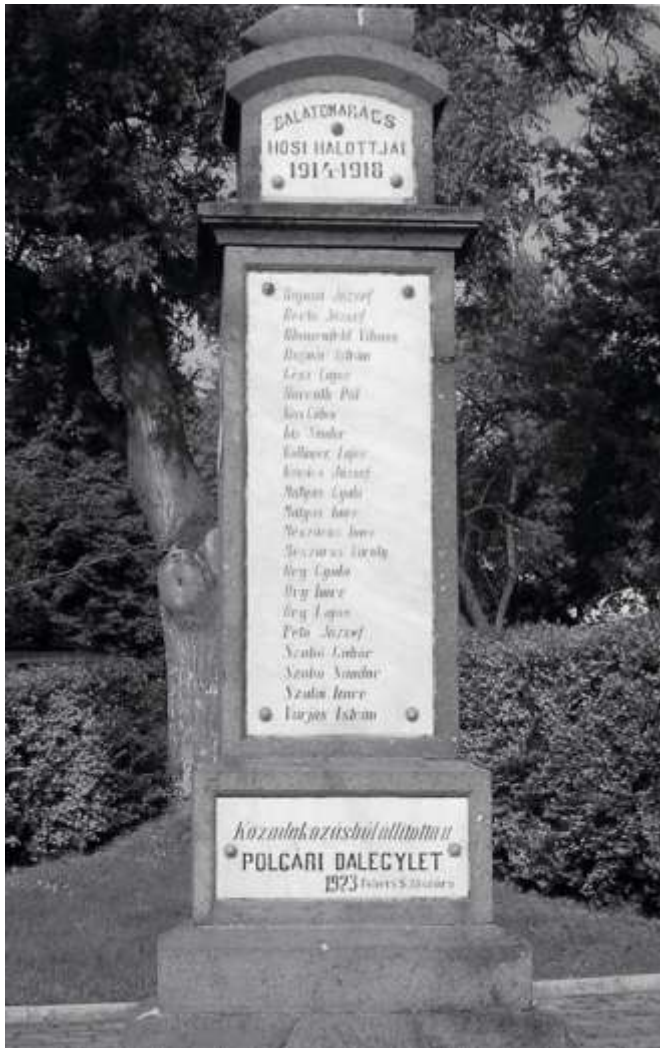 BALATONARÁCS
HŐSI HALOTTJAI
1914-1918
József
József
Blumenfeld Vilmos
Bognár István
Lajos
Horváth Pál
Kiss Gábor
Kiss Sándor
Lajos
Kovács József
Mátyás Gyula
Mátyás Imre
Mészáros Imre
Mészáros Károly
Őry Gyula
Őry Imre
Őry Lajos
Pető József
Szabó Gábor
Szabó Sándor
Szabó Imre
Varjas István
Közadakozásból állította a
POLGÁRI DALEGYLET
1923